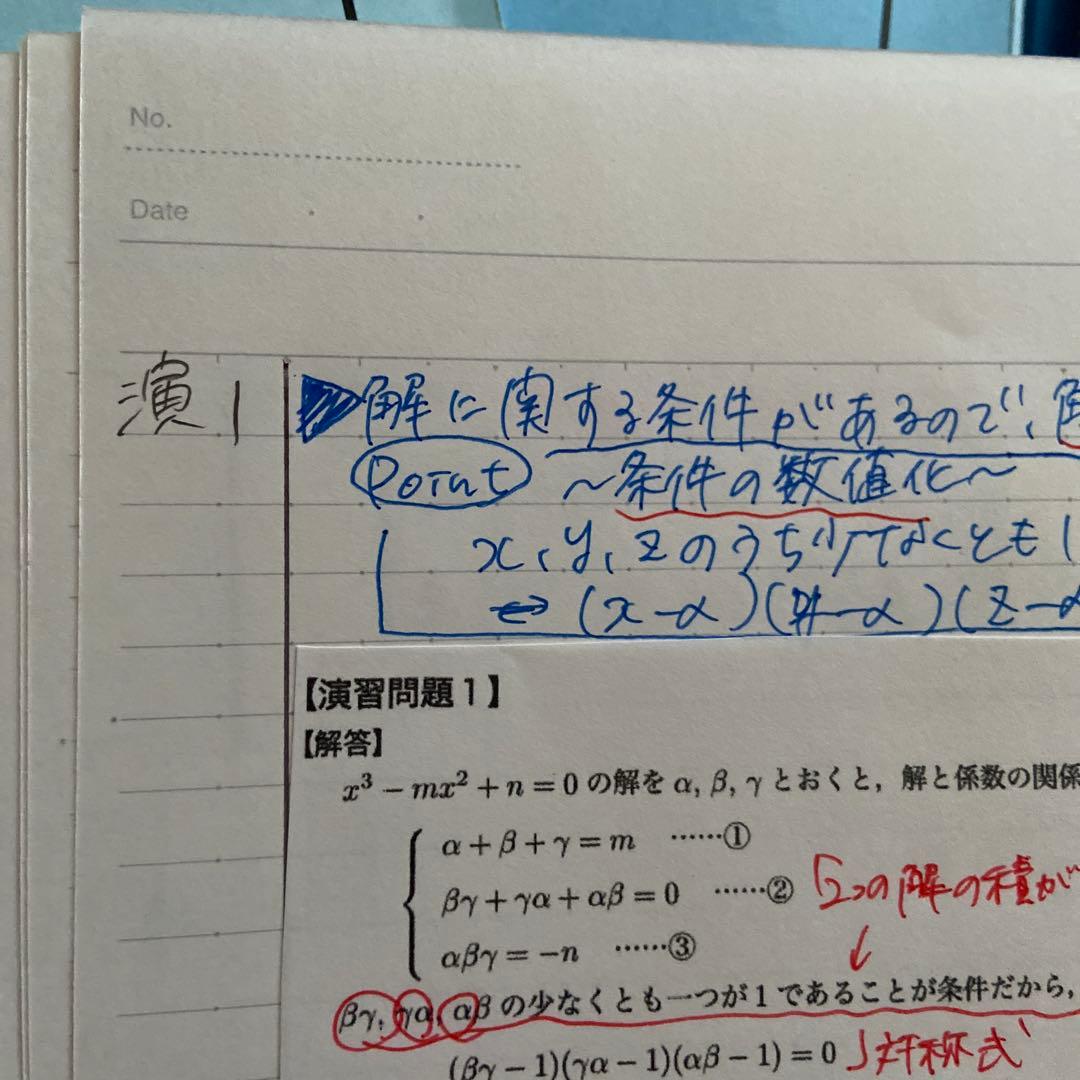 No.
Date
演1
解に関する条件があるので、
Point ～条件の数値化～
x, y, zのうち少なくとも1
⇔ (x-α)(y-α)(z-α
【演習問題1】
【解答】
x³ − mx² + n = 0 の解を α, β, γ とおくと，解と係数の関係
α + β + γ = m ……①
βγ + γα + αβ = 0 ……②
「2つの解の積が
αβγ = −n ……③
↓
βγ, γα, αβ の少なくとも一つが 1 であることが条件だから，
(βγ − 1)(γα − 1)(αβ − 1) = 0
対称式